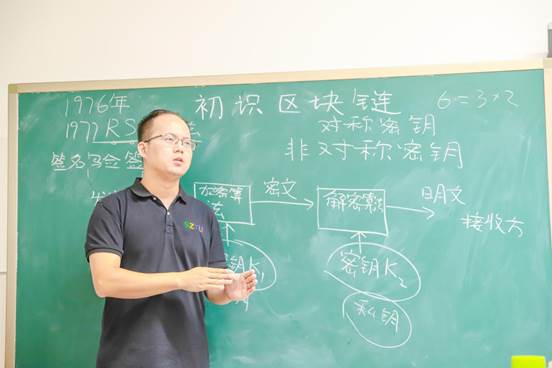 1976年
初识区块链
6=3×2
1977RS 法
对称密钥
签名与验签
非对称密钥
加密算法
密文
解密算法
明文
接收方
密钥K₁
密钥K₂
私钥